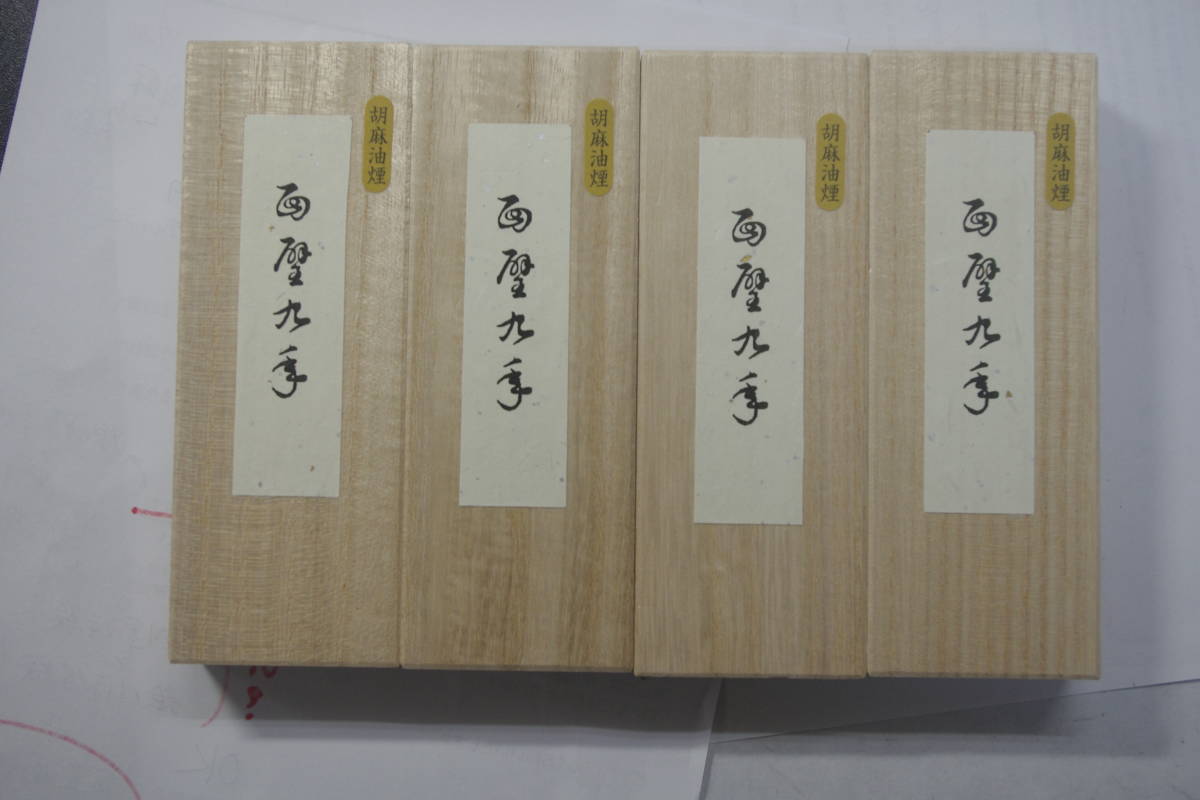 胡麻油煙
面壁九年
胡麻油煙
面壁九年
胡麻油煙
面壁九年
胡麻油煙
面壁九年